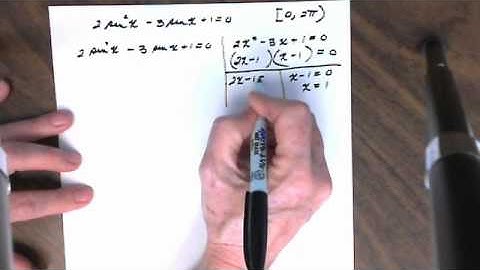 2 sin²x - 3 sin x + 1 = 0 [0, 2π)
2 sin²x - 3 sin x + 1 = 0
2x² - 3x + 1 = 0
(2x - 1)(x - 1) = 0
2x - 1 =
x - 1 = 0
x = 1